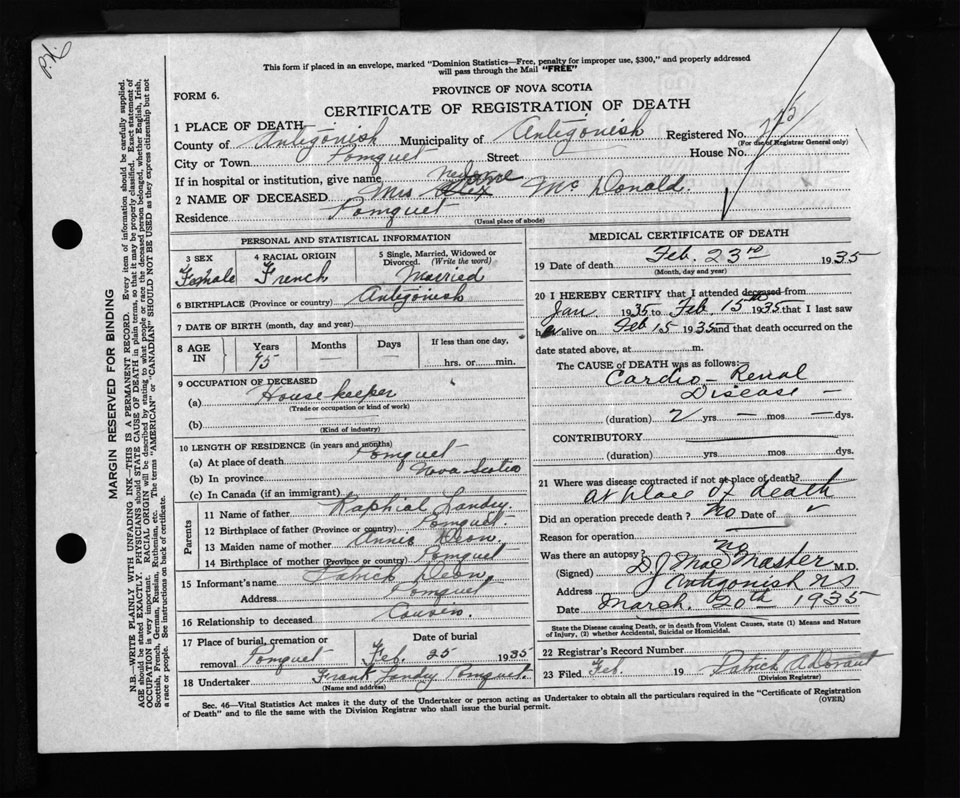 P.N.
This form if placed in an envelope, marked "Dominion Statistics—Free, penalty for improper use, $300," and properly addressed
will pass through the Mail "FREE"
PROVINCE OF NOVA SCOTIA
FORM 6.
CERTIFICATE OF REGISTRATION OF DEATH
1 PLACE OF DEATH
County of Antigonish Municipality of Antigonish Registered No.
(For use of Registrar General only)
City or Town Pomquet Street House No.
If in hospital or institution, give name
2 NAME OF DECEASED Mrs Alex McDonald.
Residence Pomquet
(Usual place of abode)
PERSONAL AND STATISTICAL INFORMATION
3 SEX 4 RACIAL ORIGIN 5 Single, Married, Widowed or Divorced. (Write the word)
Female French Married
6 BIRTHPLACE (Province or country) Antigonish
7 DATE OF BIRTH (month, day and year)
8 AGE IN Years Months Days If less than one day,
75 — — hrs. or min.
9 OCCUPATION OF DECEASED
(a) Housekeeper
(Trade or occupation or kind of work)
(b)
(Kind of industry)
10 LENGTH OF RESIDENCE (in years and months)
(a) At place of death Pomquet
(b) In province Nova Scotia
(c) In Canada (if an immigrant)
Parents
11 Name of father Raphial Landry
12 Birthplace of father (Province or country) Pomquet.
13 Maiden name of mother Annie Deon.
14 Birthplace of mother (Province or country) Pomquet
15 Informant's name Patrick Deon
Address Pomquet
16 Relationship to deceased Causin.
17 Place of burial, cremation or removal Pomquet Date of burial Feb. 25 1935
18 Undertaker Frank Landry Pomquet.
(Name and address)
MEDICAL CERTIFICATE OF DEATH
19 Date of death Feb. 23rd 1935
(Month, day and year)
20 I HEREBY CERTIFY that I attended deceased from
Jan 1935 to Feb. 15th 1935 that I last saw
her alive on Feb 15 1935 and that death occurred on the
date stated above, at m.
The CAUSE OF DEATH was as follows:—
Cardio-Renal
Disease —
(duration) 2 yrs — mos — dys.
CONTRIBUTORY
(duration) yrs. mos. dys.
21 Where was disease contracted if not at place of death?
at place of death
Did an operation precede death? No Date of
Reason for operation
Was there an autopsy? no
(Signed) D J MacMaster M.D.
Address Antigonish NS
Date March. 20th 1935
State the Disease causing Death, or in death from Violent Causes, state (1) Means and Nature
of Injury, (2) whether Accidental, Suicidal or Homicidal.
22 Registrar's Record Number
23 Filed Feb. 19 Patrick
(Division Registrar)
Sec. 46—Vital Statistics Act makes it the duty of the Undertaker or person acting as Undertaker to obtain all the particulars required in the "Certificate of Registration
of Death" and to file the same with the Division Registrar who shall issue the burial permit.
(OVER)
MARGIN RESERVED FOR BINDING
N.B.—WRITE PLAINLY WITH UNFADING INK.—THIS IS A PERMANENT RECORD. Every item of information should be carefully supplied.
AGE should be stated EXACTLY. PHYSICIANS should STATE CAUSE OF DEATH in plain terms, so that it may be properly classified. Exact statement of
OCCUPATION is very important. RACIAL ORIGIN will be described by stating to what people or race the deceased person belonged, whether English, Irish,
Scottish, French, German, Russian, Ruthenian, etc. The terms "AMERICAN" or "CANADIAN" SHOULD NOT BE USED as they express citizenship but not
a race or people. See instructions on back of certificate.